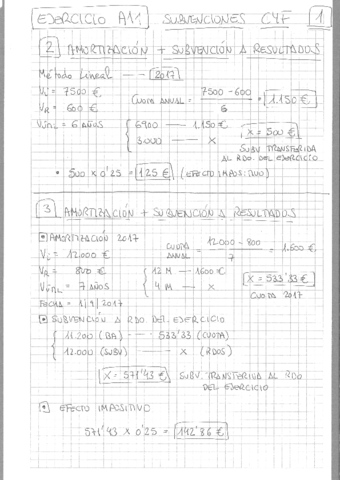 EJERCICIO A11 SUBVENCIONES CYF 1
2 AMORTIZACIÓN + SUBVENCIÓN A RESULTADOS
Método Lineal — 2017
Vi = 7500 €
VR = 600 €
Vútil = 6 AÑOS
CUOTA ANUAL = 7500 - 600 / 6 = 1.150 €
6900 — 1.150 €
3000 — X
X = 500 €
SUBV TRANSFERIDA
AL RDO. DEL EJERCICIO
• 500 x 0'25 = 125 € (EFECTO IMPOSITIVO)
3 AMORTIZACIÓN + SUBVENCIÓN A RESULTADOS
AMORTIZACIÓN 2017
Vi = 12.000 €
VR = 800 €
Vútil = 7 AÑOS
FECHA = 1/9/2017
CUOTA ANUAL = 12.000 - 800 / 7 = 1.600 €
12 M — 1600 €
4 M — X
X = 533'33 €
CUOTA 2017
SUBVENCIÓN A RDO DEL EJERCICIO
11.200 (BA) — 533'33 (CUOTA)
12.000 (SUBV) — X (RDOS)
X = 571'43 €
SUBV. TRANSFERIDA AL RDO
DEL EJERCICIO
EFECTO IMPOSITIVO
571'43 x 0'25 = 142'86 €